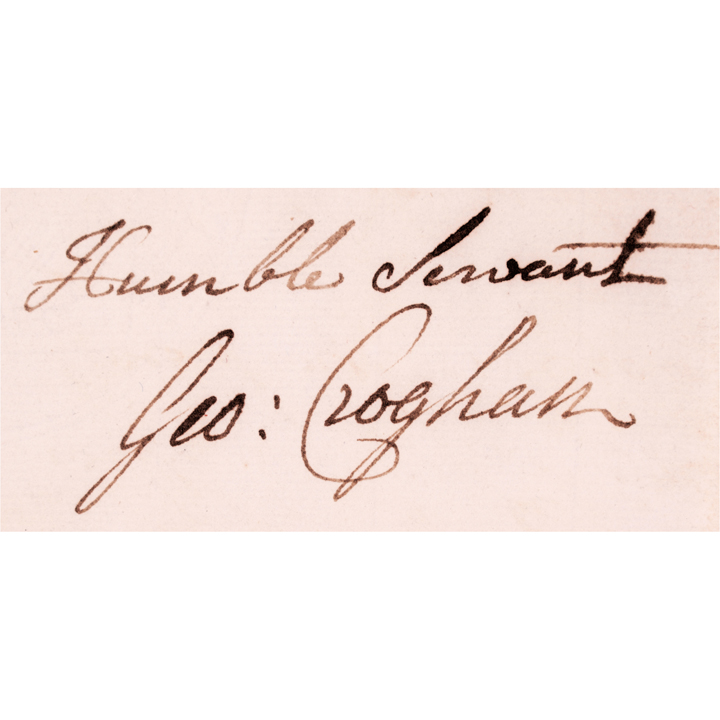 Humble Servant
Geo: Croghan